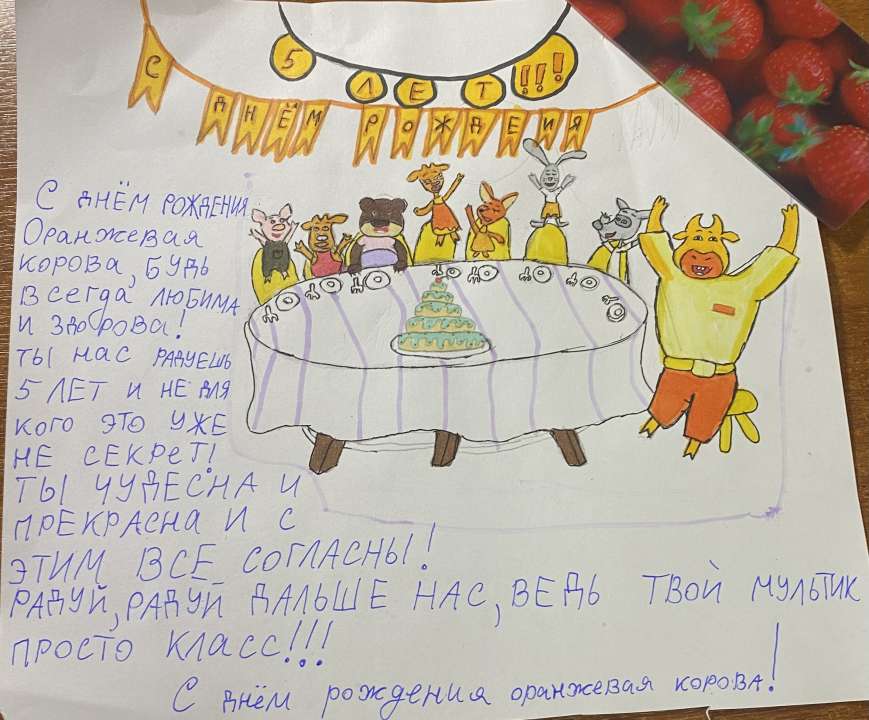 5 ЛЕТ!!!
С ДНЁМ РОЖДЕНИЯ
С ДНЁМ РОЖДЕНИЯ
ОРАНЖЕВАЯ
КОРОВА, БУДЬ
ВСЕГДА ЛЮБИМА
И ЗДОРОВА!
ТЫ НАС РАДУЕШЬ
5 ЛЕТ И НЕ ДЛЯ
КОГО ЭТО УЖЕ
НЕ СЕКРЕТ!
ТЫ ЧУДЕСНА И
ПРЕКРАСНА И С
ЭТИМ ВСЕ СОГЛАСНЫ!
РАДУЙ, РАДУЙ ДАЛЬШЕ НАС, ВЕДЬ ТВОЙ МУЛЬТИК
ПРОСТО КЛАСС!!!
С днём рождения оранжевая корова!